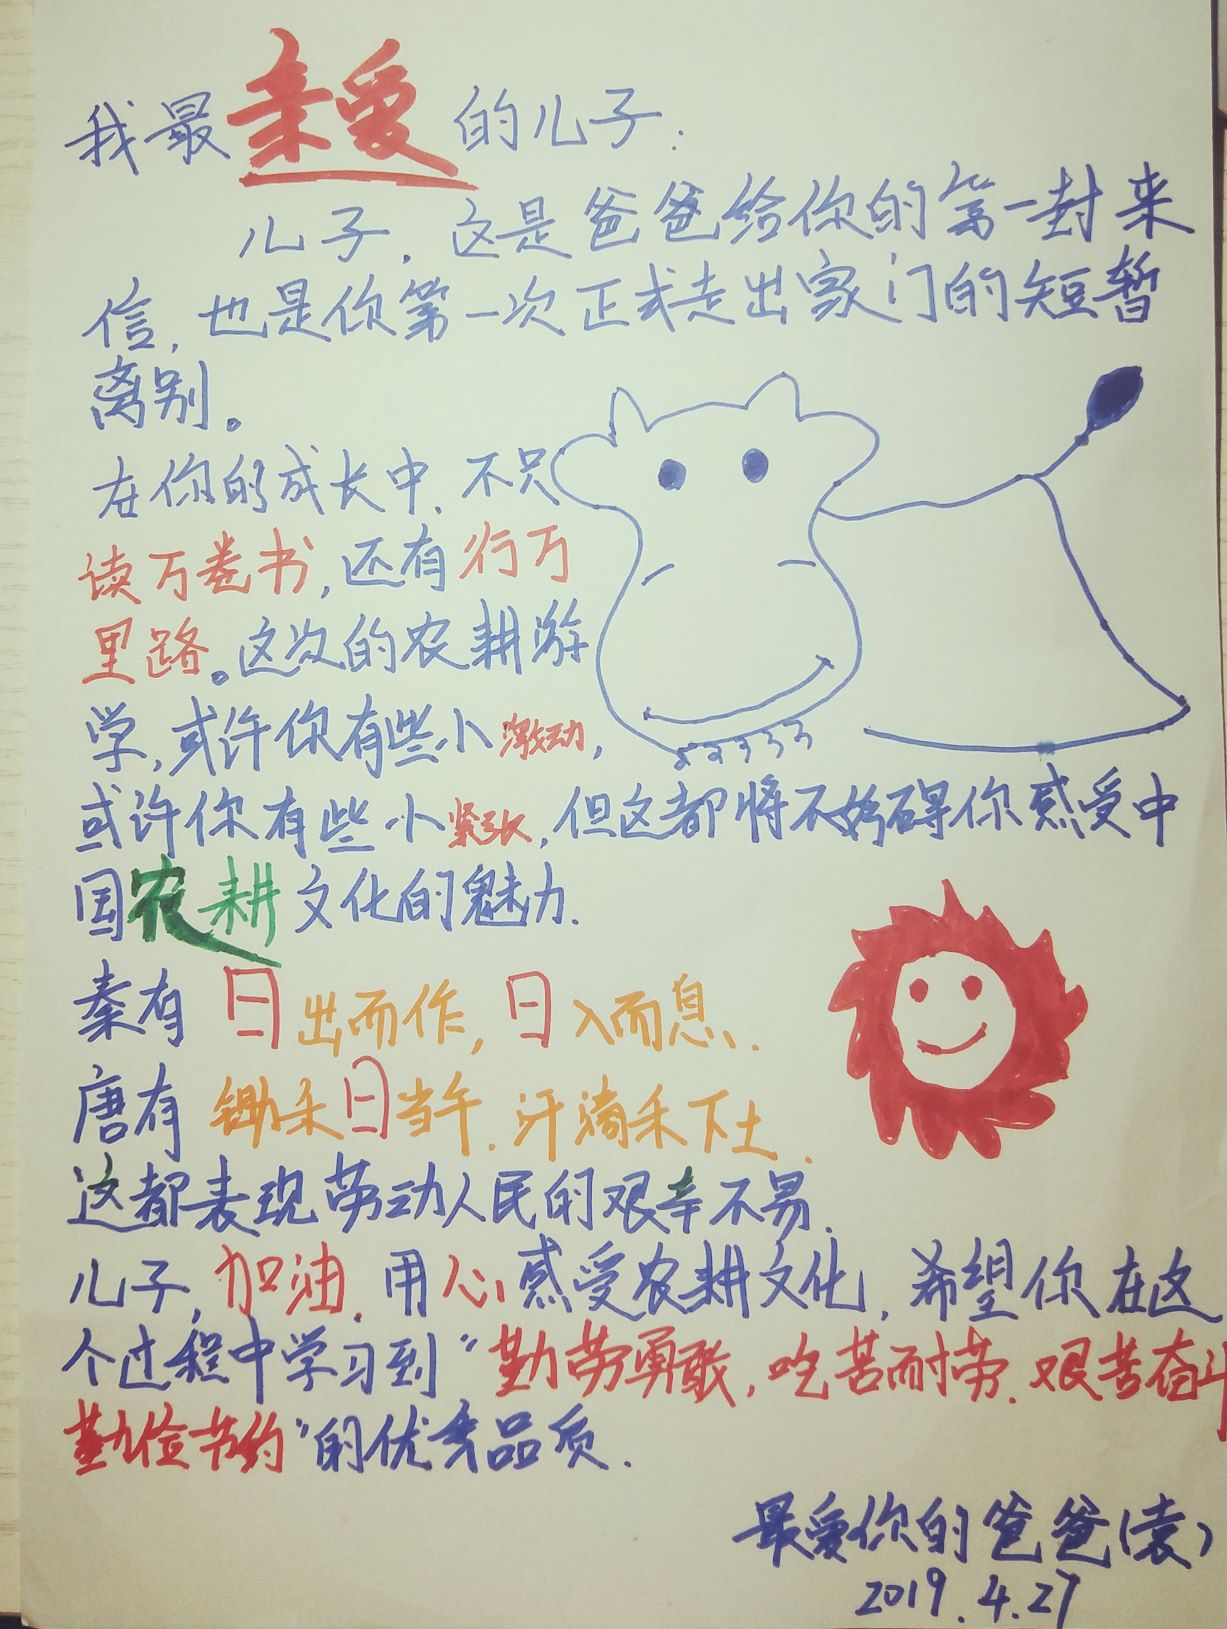 我最亲爱的儿子:
儿子,这是爸爸给你的第一封来
信,也是你第一次正式走出家门的短暂
离别。
在你的成长中,不只
读万卷书,还有行万
里路。这次的农耕游
学,或许你有些小激动,
或许你有些小紧张,但这都将不妨碍你感受中
国农耕文化的魅力.
秦有 日出而作,日入而息.
唐有 锄禾日当午.汗滴禾下土.
这都表现劳动人民的艰辛不易.
儿子,加油.用心感受农耕文化,希望你在这
个过程中学习到“勤劳勇敢,吃苦而耐劳.艰苦奋斗
勤俭节约”的优秀品质.
最爱你的爸爸(袁)
2019.4.27